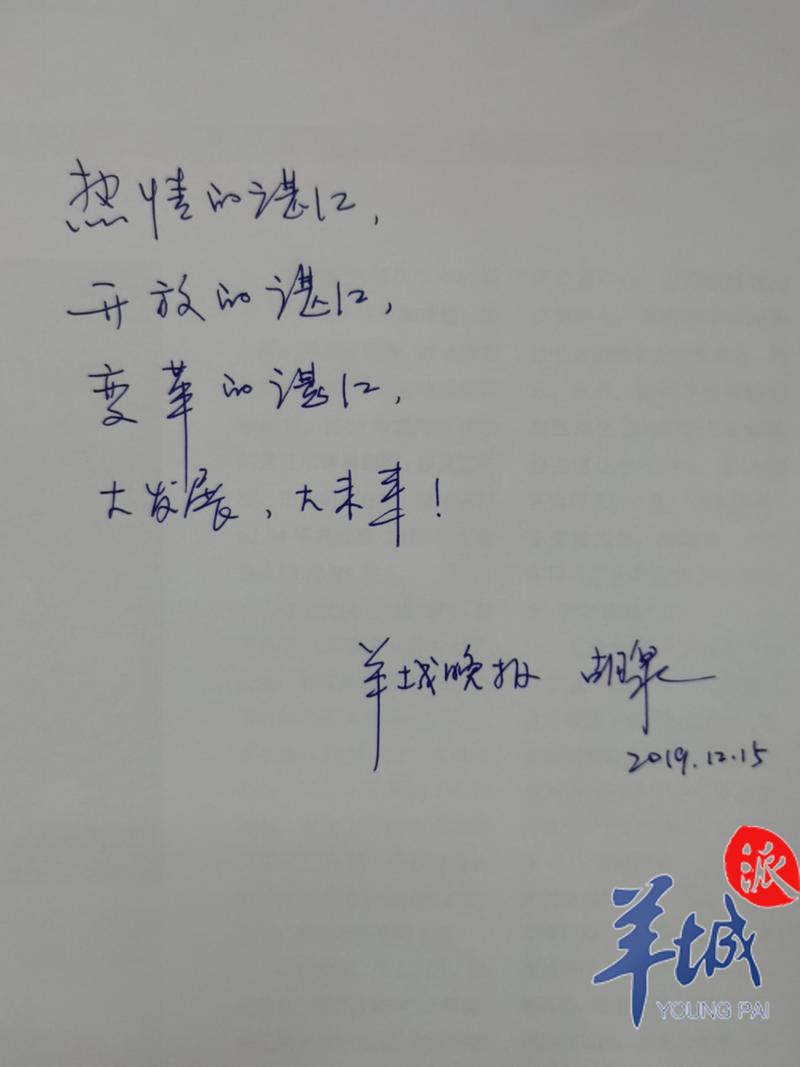 热情的湛江,
开放的湛江,
变革的湛江,
大发展,大未来!
羊城晚报 胡泉
2019.12.15
派
羊城
YOUNG PAI